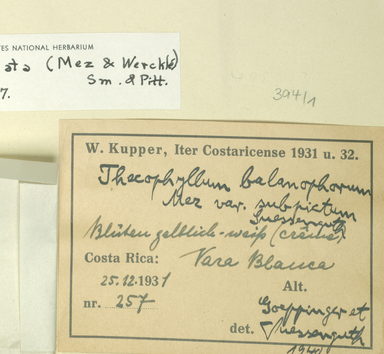 TES NATIONAL HERBARIUM
ata (Mez & Wercklé)
Sm. & Pitt.
7.
394/1
W. Kupper, Iter Costaricense 1931 u. 32.
Thecophyllum balanophorum
Mez var. subpictum
Suessenguth
Blüten gelblich-weiß (crème).
Costa Rica: Vara Blanca
25.12.1931 Alt.
nr. 257 Goeppinger et
det. Suessenguth